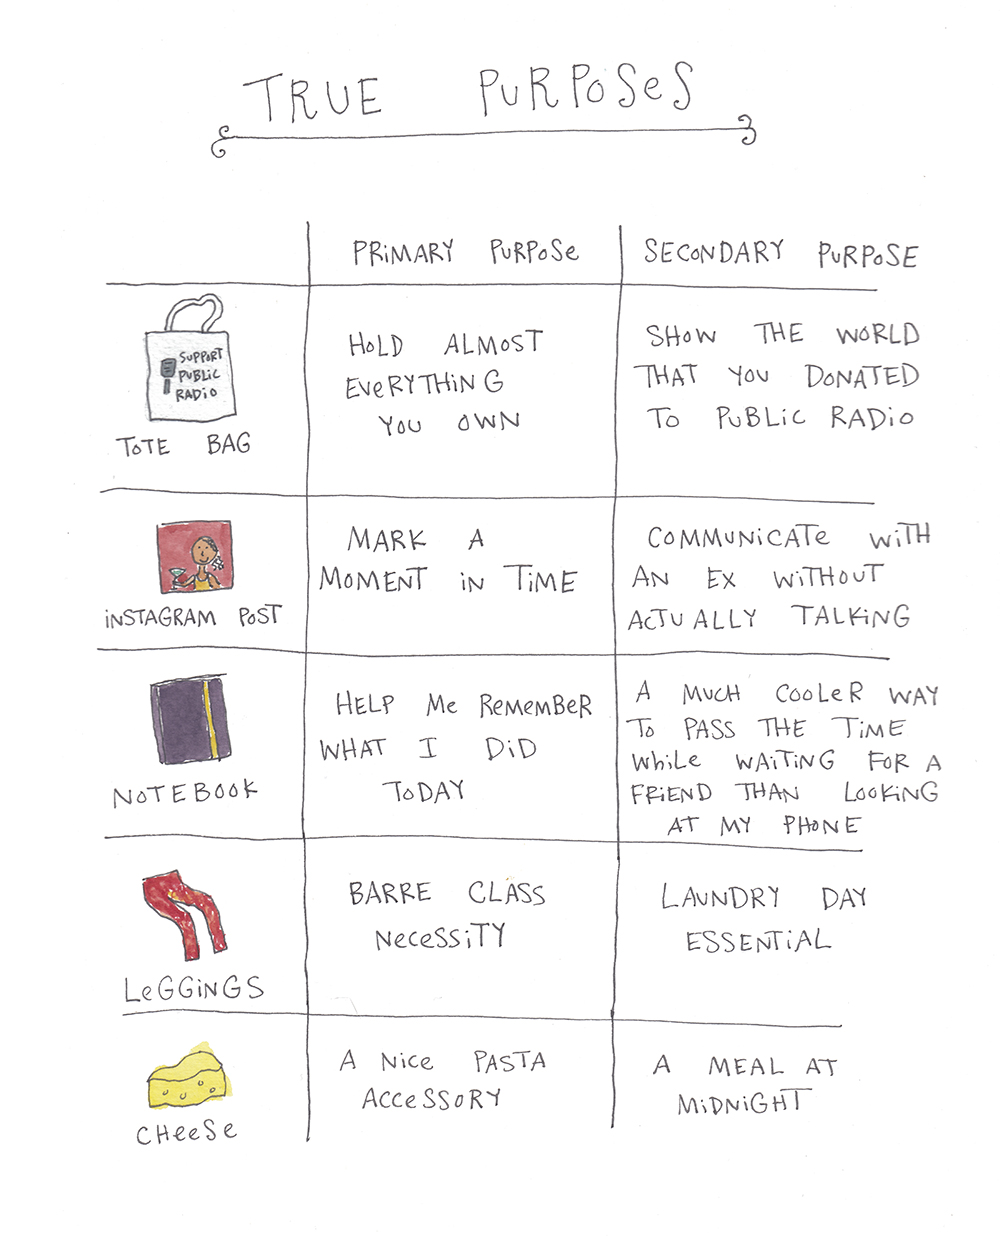 TRUE PURPOSES
PRIMARY PURPOSE
SECONDARY PURPOSE
SUPPORT
PUBLIC
RADIO
TOTE BAG
HOLD ALMOST
EVERYTHING
YOU OWN
SHOW THE WORLD
THAT YOU DONATED
TO PUBLIC RADIO
INSTAGRAM POST
MARK A
MOMENT IN TIME
COMMUNICATE WITH
AN EX WITHOUT
ACTUALLY TALKING
NOTEBOOK
HELP ME REMEMBER
WHAT I DID
TODAY
A MUCH COOLER WAY
TO PASS THE TIME
WHILE WAITING FOR A
FRIEND THAN LOOKING
AT MY PHONE
LEGGINGS
BARRE CLASS
NECESSITY
LAUNDRY DAY
ESSENTIAL
CHEESE
A NICE PASTA
ACCESSORY
A MEAL AT
MIDNIGHT